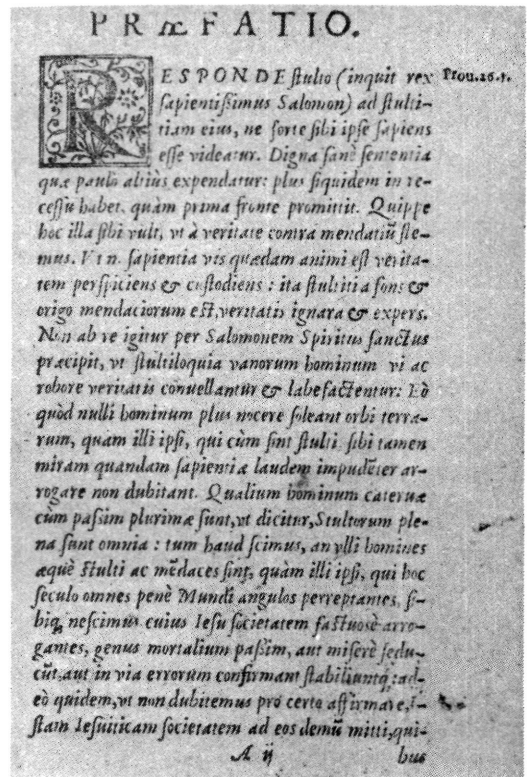 PRÆFATIO.
RESPONDE stulto (inquit rex Prou.26.5.
sapientißimus Salomon) ad stulti-
tiam eius, ne forte sibi ipse sapiens
esse videatur. Digna sanè sententia
quæ paulò altiùs expendatur: plus siquidem in re-
cessu habet, quàm prima fronte promittit. Quippe
hoc illa sibi vult, vt à veritate contra mendatiũ ste-
mus. Vt n. sapientia vis quædam animi est verita-
tem perspiciens & custodiens: ita stultitia fons &
origo mendaciorum est, veritatis ignara & expers.
Non ab re igitur per Salomonem Spiritus sanctus
præcipit, vt stultiloquia vanorum hominum vi ac
robore veritatis conuellantur & labefactentur: Eò
quòd nulli hominum plus nocere soleant orbi terra-
rum, quam illi ipsi, qui cùm sint stulti sibi tamen
miram quandam sapientiæ laudem impudẽter ar-
rogare non dubitant. Qualium hominum cateruæ
cùm paßim plurimæ sunt, vt dicitur, Stultorum ple-
na sunt omnia: tum haud scimus, an vlli homines
æquè stulti ac mẽdaces sint, quàm illi ipsi, qui hoc
seculo omnes penè Mundi angulos perreptantes, si-
biq, nescimus cuius Iesu societatem fastuosè arro-
gantes, genus mortalium paßim, aut miserè sedu-
cũt, aut in via errorum confirmant stabiliuntq: ad-
eò quidem, vt non dubitemus pro certo affirmare, i-
stam Iesuiticam societatem ad eos demũ mitti, qui-
A ij bus